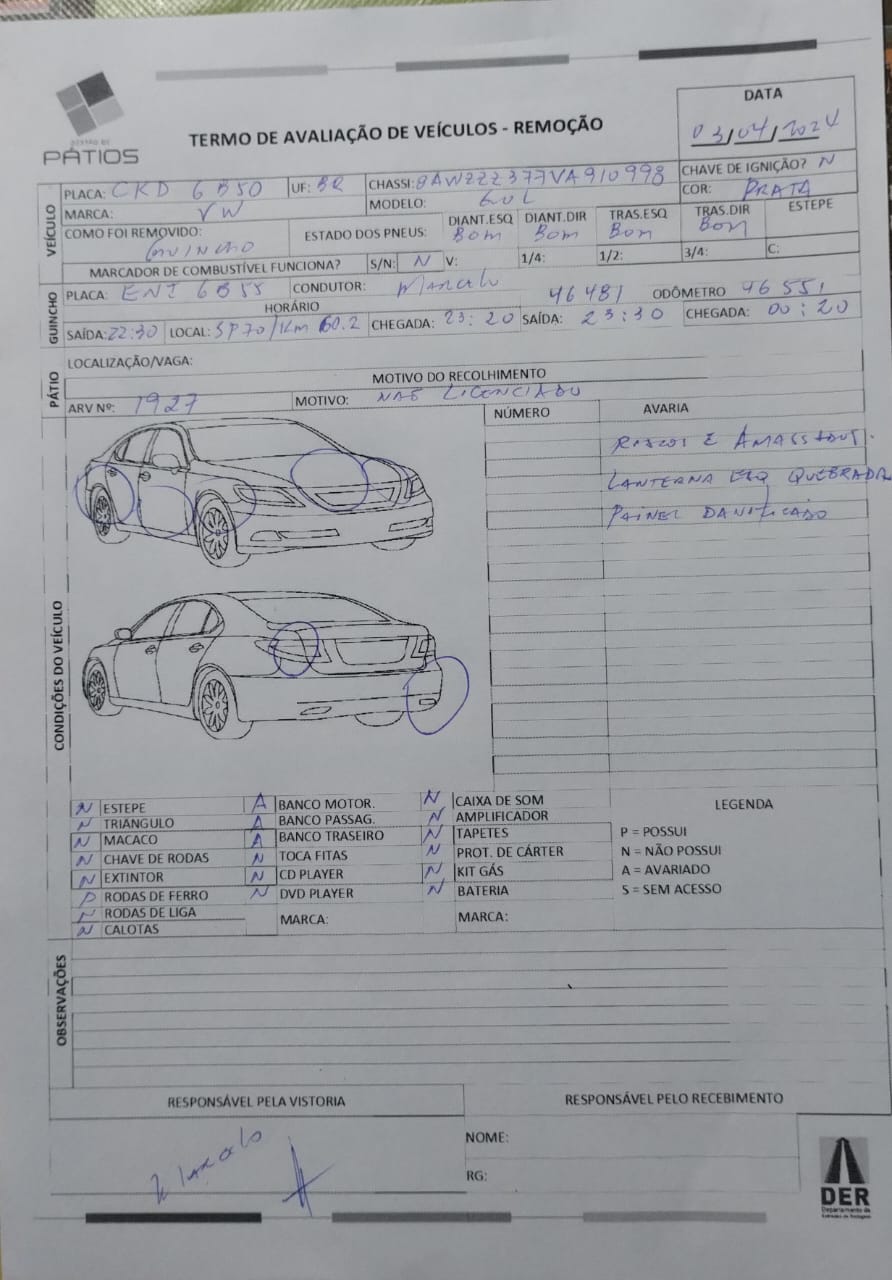 GESTÃO DE
PÁTIOS
TERMO DE AVALIAÇÃO DE VEÍCULOS - REMOÇÃO
DATA
03/04/2024
VEÍCULO
PLACA: CKD 6B50 UF: BR CHASSI: 8AWZZZ377VA910998 CHAVE DE IGNIÇÃO? N
MARCA: VW MODELO: GOL COR: PRATA
COMO FOI REMOVIDO: GUINCHO ESTADO DOS PNEUS: DIANT.ESQ BOM DIANT.DIR BOM TRAS.ESQ BOM TRAS.DIR BOM ESTEPE
MARCADOR DE COMBUSTÍVEL FUNCIONA? S/N: N V: 1/4: 1/2: 3/4: C:
GUINCHO
PLACA: ENJ 6B55 CONDUTOR: Marcelo 46481 ODÔMETRO 46551
HORÁRIO
SAÍDA: 22:30 LOCAL: SP70/Km 60.2 CHEGADA: 23:20 SAÍDA: 23:30 CHEGADA: 00:20
PÁTIO
LOCALIZAÇÃO/VAGA:
MOTIVO DO RECOLHIMENTO
ARV Nº: 1927 MOTIVO: NAO LICENCIADO
CONDIÇÕES DO VEÍCULO
NÚMERO AVARIA
RISCOS E AMASSADOS.
LANTERNA ESQ QUEBRADA
PAINEL DANIFICADO
N ESTEPE A BANCO MOTOR. N CAIXA DE SOM
N TRIÂNGULO A BANCO PASSAG. N AMPLIFICADOR
N MACACO A BANCO TRASEIRO N TAPETES
N CHAVE DE RODAS N TOCA FITAS N PROT. DE CÁRTER
N EXTINTOR N CD PLAYER N KIT GÁS
P RODAS DE FERRO N DVD PLAYER N BATERIA
N RODAS DE LIGA MARCA: MARCA:
N CALOTAS
LEGENDA
P = POSSUI
N = NÃO POSSUI
A = AVARIADO
S = SEM ACESSO
OBSERVAÇÕES
RESPONSÁVEL PELA VISTORIA
Marcelo
RESPONSÁVEL PELO RECEBIMENTO
NOME:
RG:
DER
Departamento de
Estradas de Rodagem